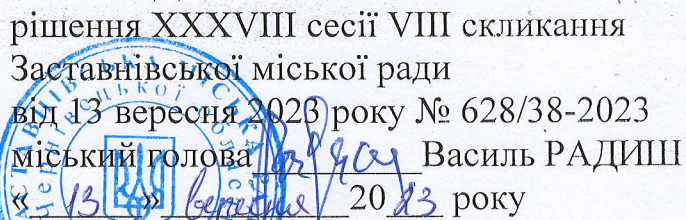 рішення XXXVIII сесії VIII скликання
Заставнівської міської ради
від 13 вересня 2023 року № 628/38-2023
міський голова Василь РАДИШ
« 13 » вересня 2023 року